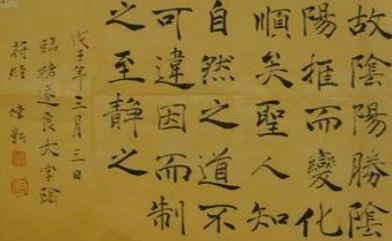 故陰陽勝陰
陽推而變化
順矣聖人知
自然之道不
可違因而制
之至靜之
戊子年三月三日
臨褚遂良大字陰
符經